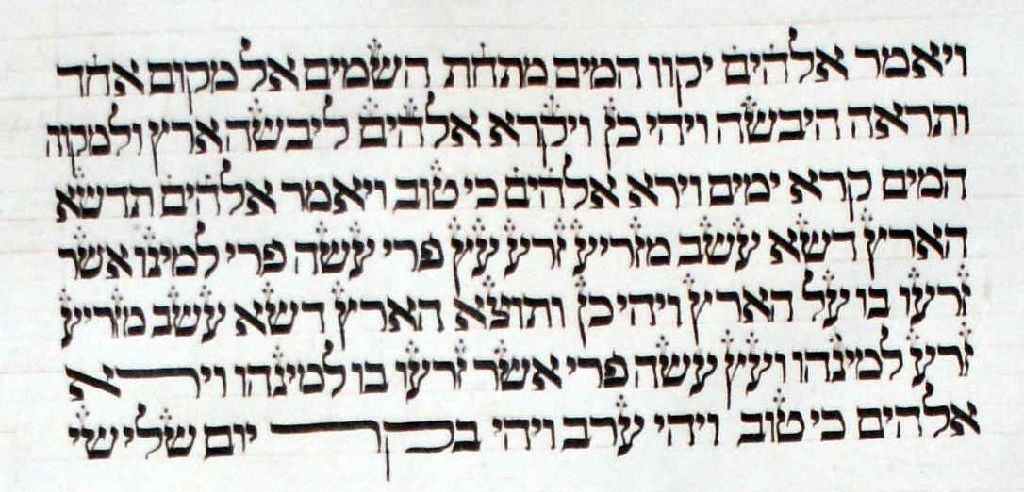 ויאמר אלהים יקוו המים מתחת השמים אל מקום אחד
ותראה היבשה ויהי כן ויקרא אלהים ליבשה ארץ ולמקוה
המים קרא ימים וירא אלהים כי טוב ויאמר אלהים תדשא
הארץ דשא עשב מזריע זרע עץ פרי עשה פרי למינו אשר
זרעו בו על הארץ ויהי כן ותוצא הארץ דשא עשב מזריע
זרע למינהו ועץ עשה פרי אשר זרעו בו למינהו וירא
אלהים כי טוב ויהי ערב ויהי בקר יום שלישי